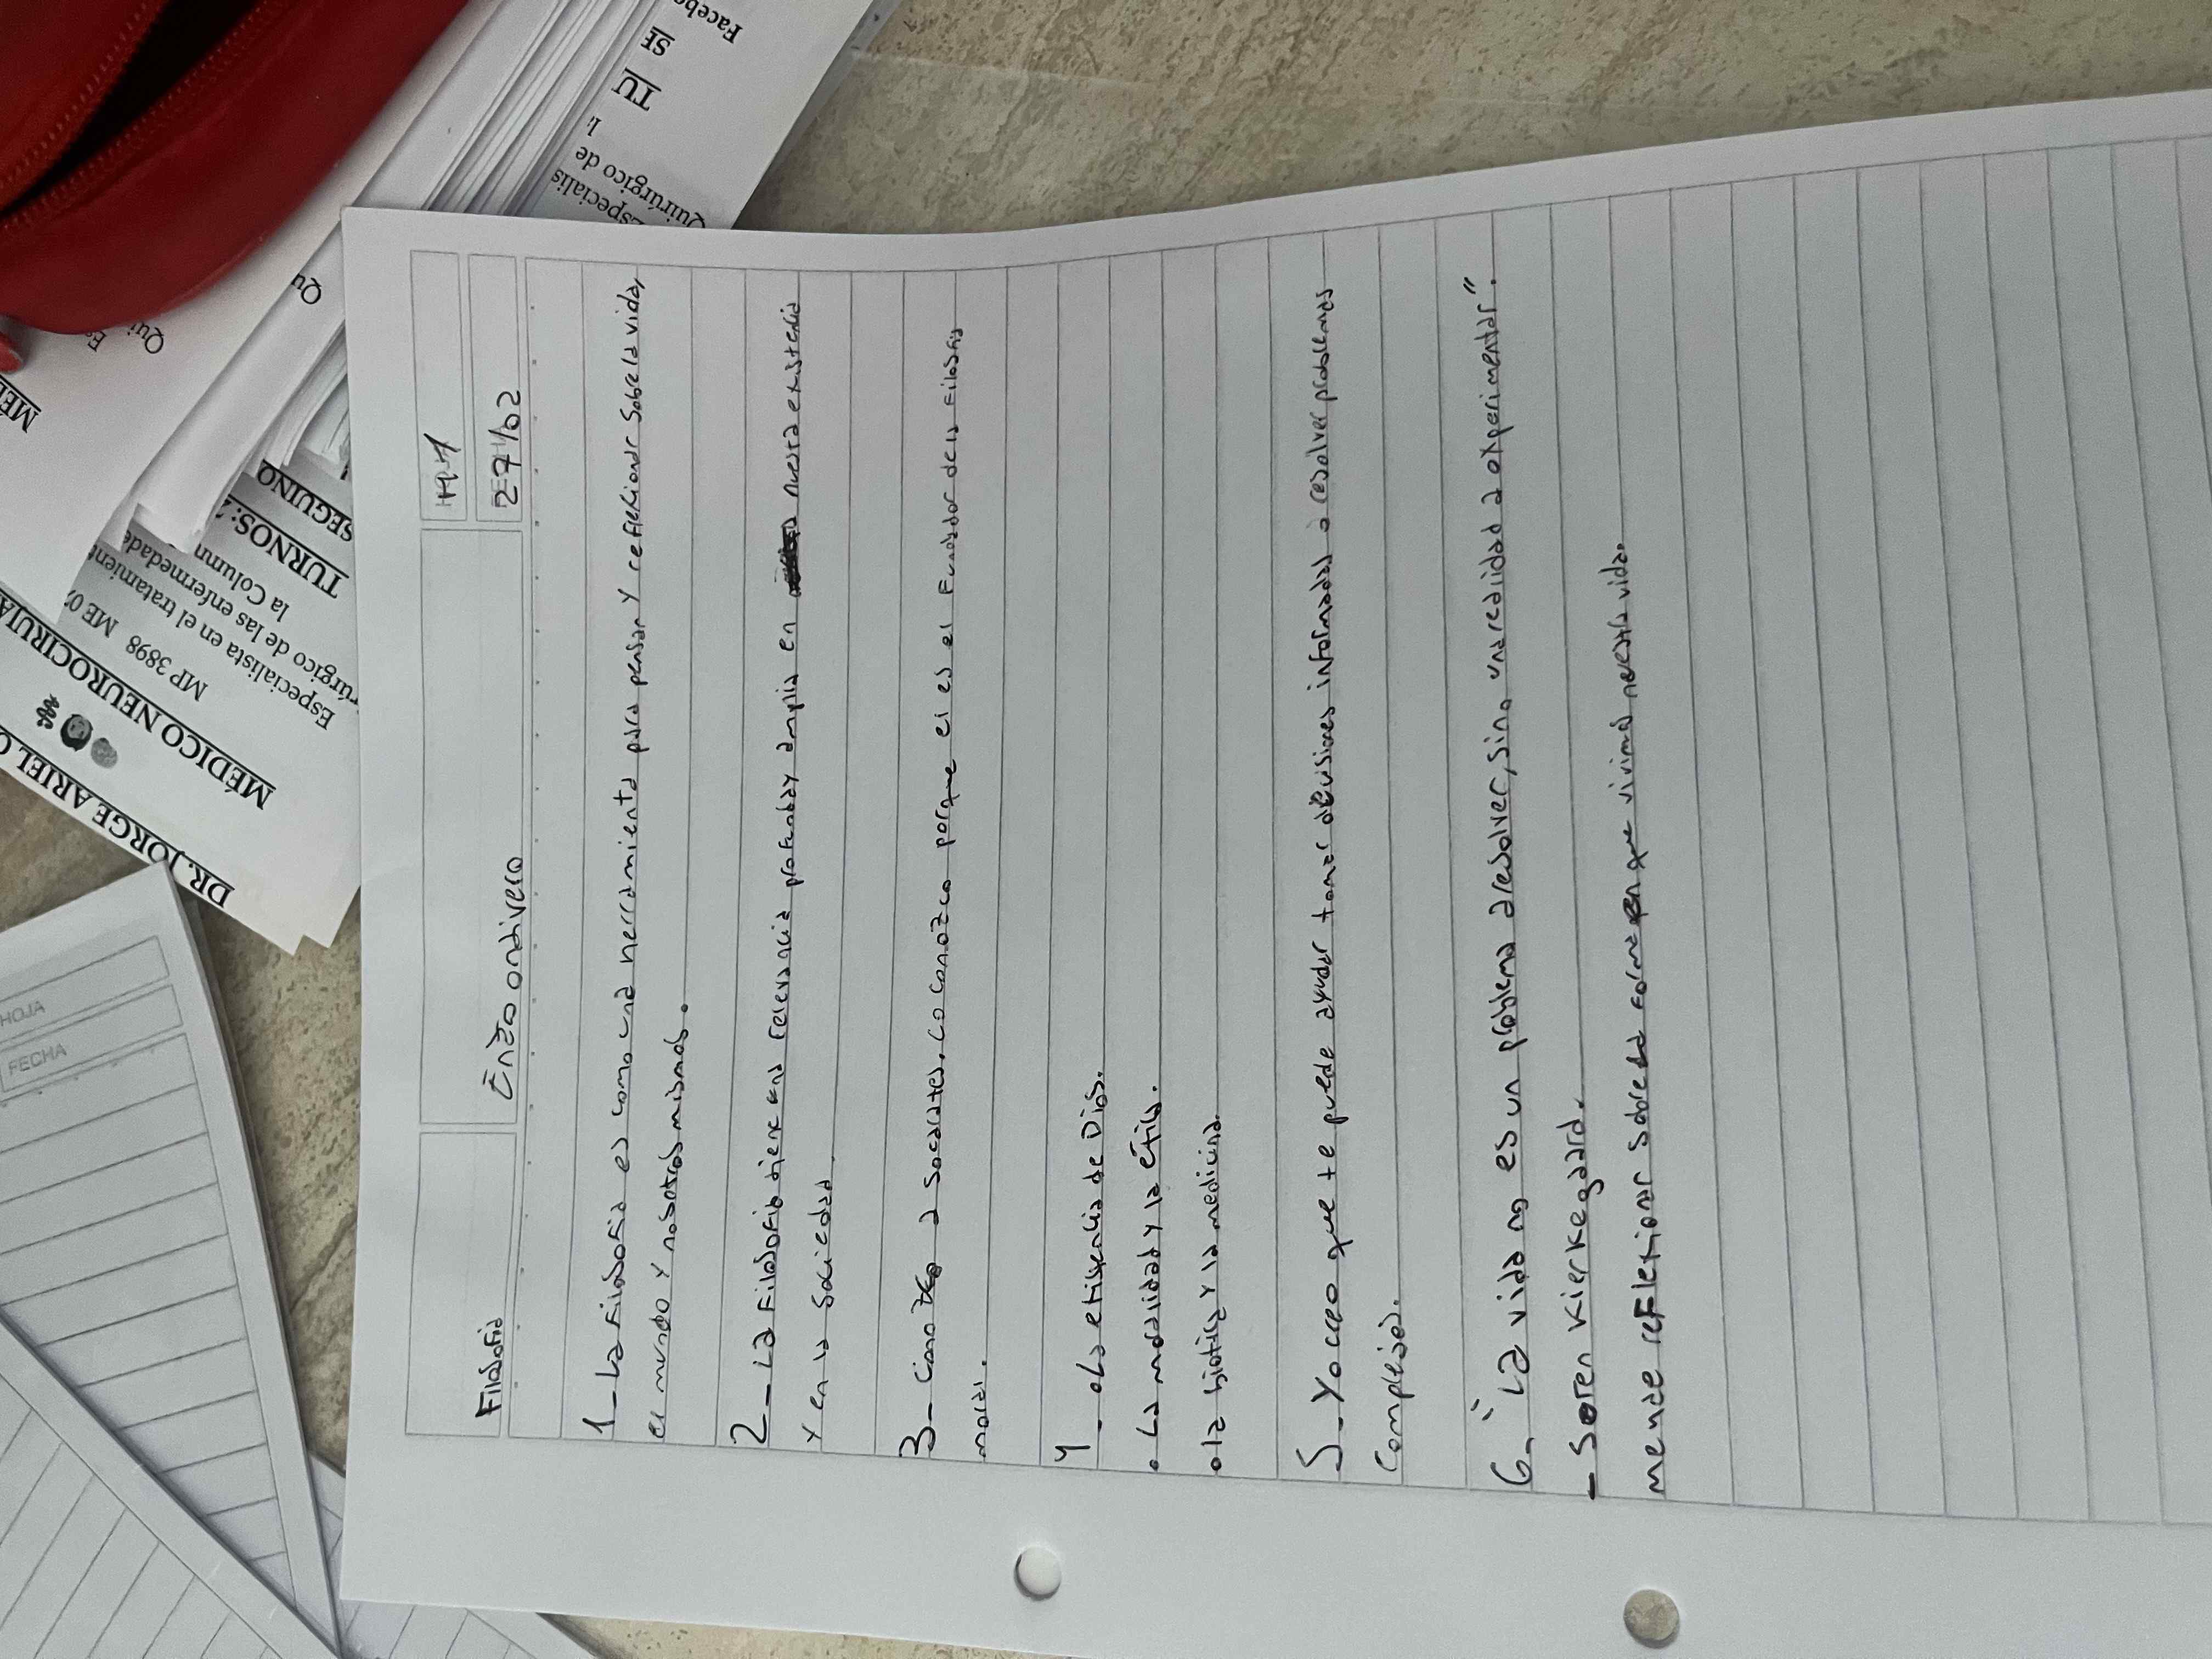 Filosofia
Enzo ondivero
H.1
27/02
1_ La Filosofia es como una herramienta para pensar Y reflexionar sobre la vida,
el mundo Y nosotros mismos.
2_ La Filosofia tiene una relevancia profunda y amplia en nuestra existencia
Y en la sociedad.
3_ a socartes, lo conozco porque el es el Fundador de la Filosofia
moral.
4_ • La existencia de Dios.
• La moralidad y la Ética.
• la biotica y la medicina.
5_ Yo creo que te puede ayudar tomar desisiones informadas o resolver problemas
Complejos.
6_ "La vida no es un problema a resolver, sino una realidad a experimentar".
_ Soren Kierkegaard.
me hace reflexionar sobre la forma en que vivimos nuestra vida.
HOJA
FECHA
DR. JORGE ARIEL
MÉDICO NEUROCIRUJA
MP 3898 ME 0
Especialista en el tratamient
rúrgico de las enfermedade
la Column
TURNOS:
SEGUINO
MÉ
Qui
Qu
Especialis
Quirúrgico de
TU
SE
Facebo